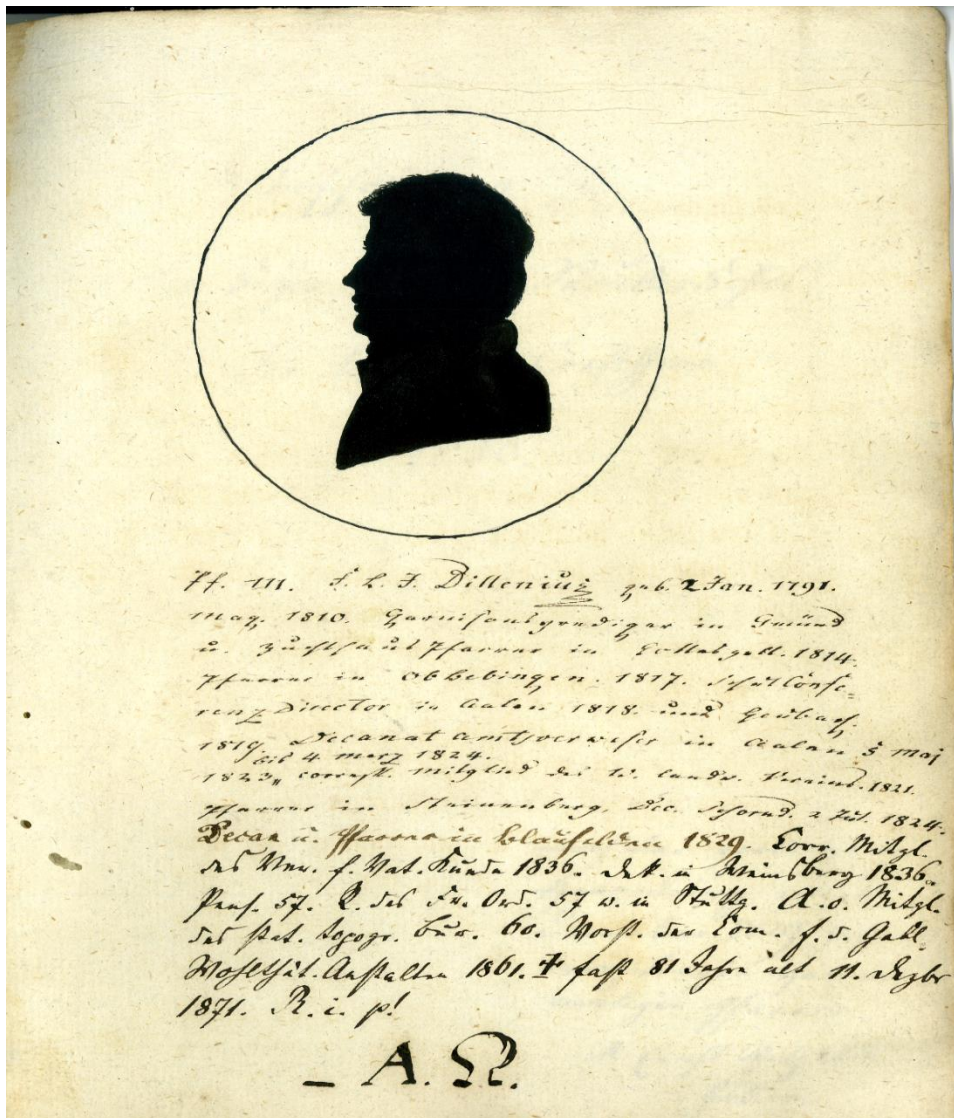 Pf. M. F. L. J. Dillenius geb. 2 Jan. 1791.
Mag. 1810. Garnisonsprediger in Gmünd
u. Zuchthaus Pfarrer in Gotteszell. 1814.
Pfarrer in Obbebingen. 1817. Schul Confe-
renz Director in Aalen 1818. und Heubach.
1819. Decanat amtsverweser in Aalen 5 Maj
bis 4. Merz 1824.
1823, corresp. Mitglied des W. landw. Vereins. 1821.
Pfarrer in Steinenberg, Dec. Schornd. 2 Jul. 1824.
Decan u. Pfarrer in Blaufelden 1829. Corr. Mitgl.
des Ver. f. Vat. Kunde 1836. Dek. in Weinsberg 1836.
Pens. 57. R. des Fr. Ord. 57 w. in Stuttg. A. o. Mitgl.
des stat. topogr. Bur. 60. Vorst. der Com. f. d.
Wohlthät. Anstalten 1861. † fast 81 Jahre alt 11. Dezbr
1871. R. i. p!
– A. Ω.